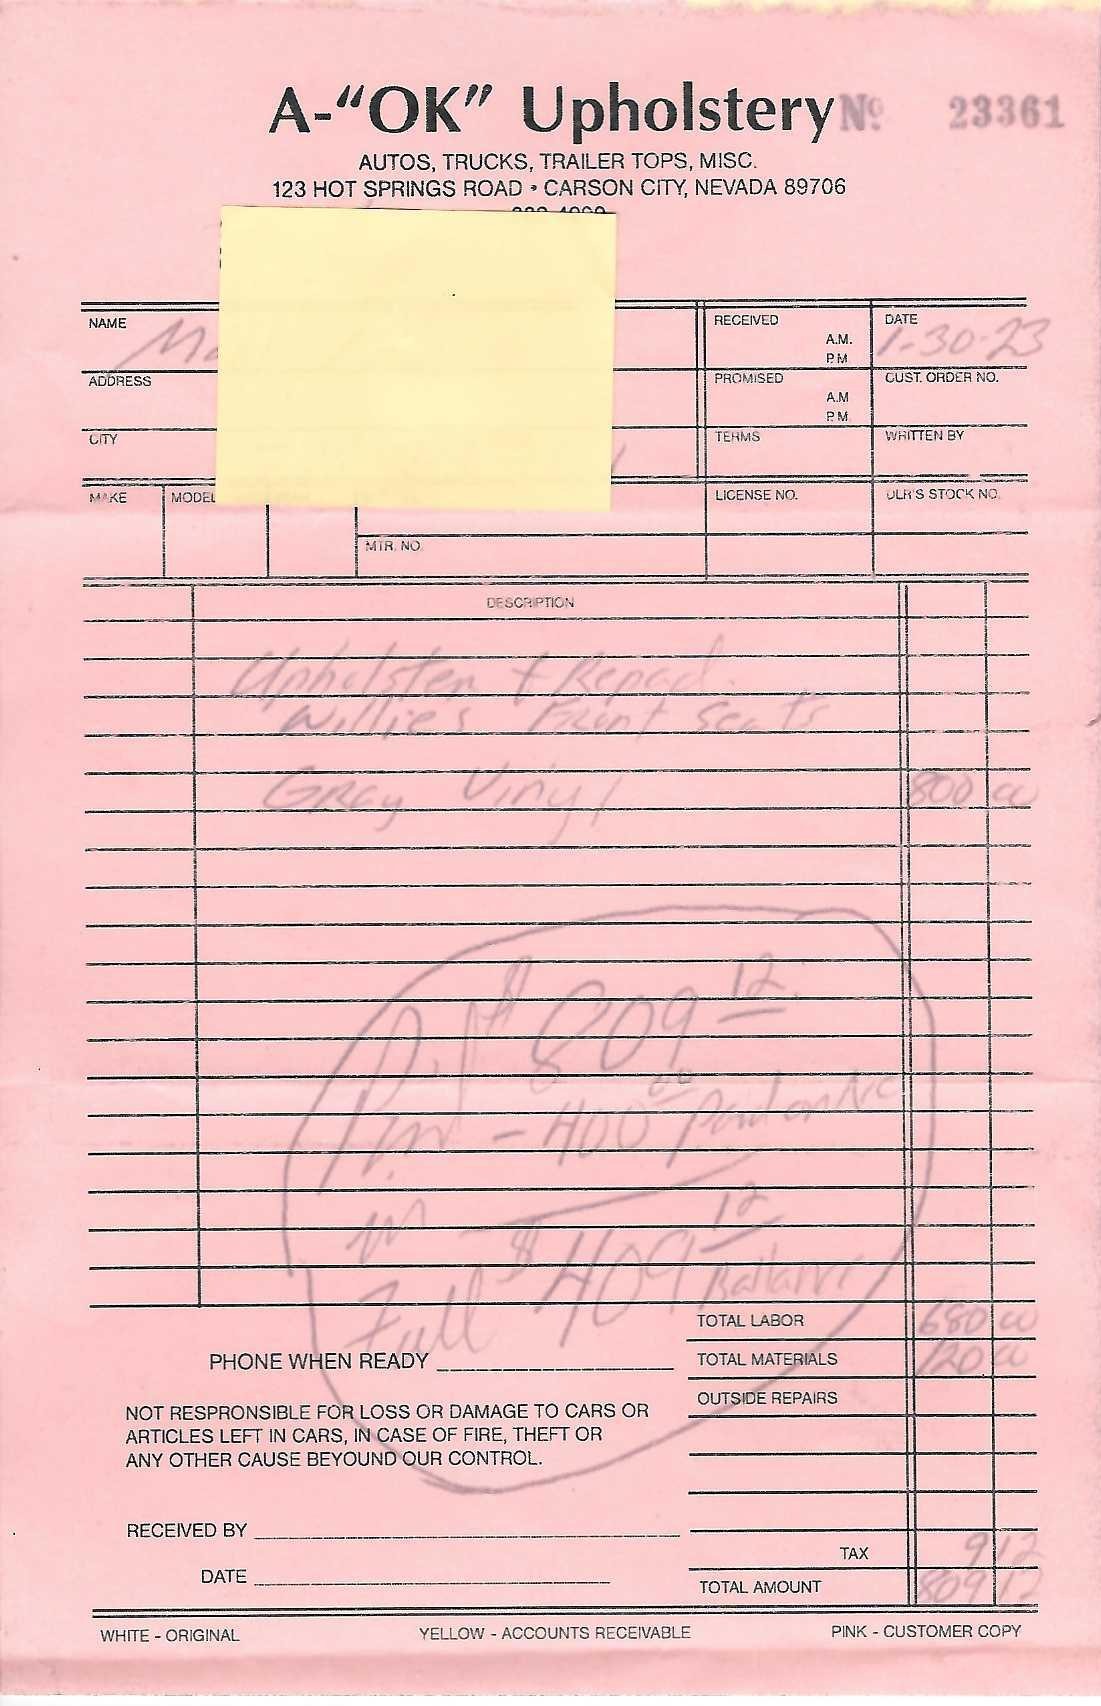 A-"OK" Upholstery Nº 23361
AUTOS, TRUCKS, TRAILER TOPS, MISC.
123 HOT SPRINGS ROAD • CARSON CITY, NEVADA 89706
NAME
RECEIVED A.M. P.M.
DATE 1-30-23
ADDRESS
PROMISED A.M P.M.
CUST. ORDER NO.
CITY
TERMS
WRITTEN BY
MAKE MODEL
LICENSE NO.
DLR'S STOCK NO.
MTR. NO.
DESCRIPTION
Upholster + Repad.
Willies Front Seats
Gray Vinyl 800 00
Paid $ 809 12
- 400 00 Paid on
in
$ 409 12
Full
TOTAL LABOR 680 00
PHONE WHEN READY
TOTAL MATERIALS 120 00
OUTSIDE REPAIRS
NOT RESPRONSIBLE FOR LOSS OR DAMAGE TO CARS OR
ARTICLES LEFT IN CARS, IN CASE OF FIRE, THEFT OR
ANY OTHER CAUSE BEYOUND OUR CONTROL.
RECEIVED BY
TAX 9 12
DATE
TOTAL AMOUNT 809 12
WHITE - ORIGINAL YELLOW - ACCOUNTS RECEIVABLE PINK - CUSTOMER COPY